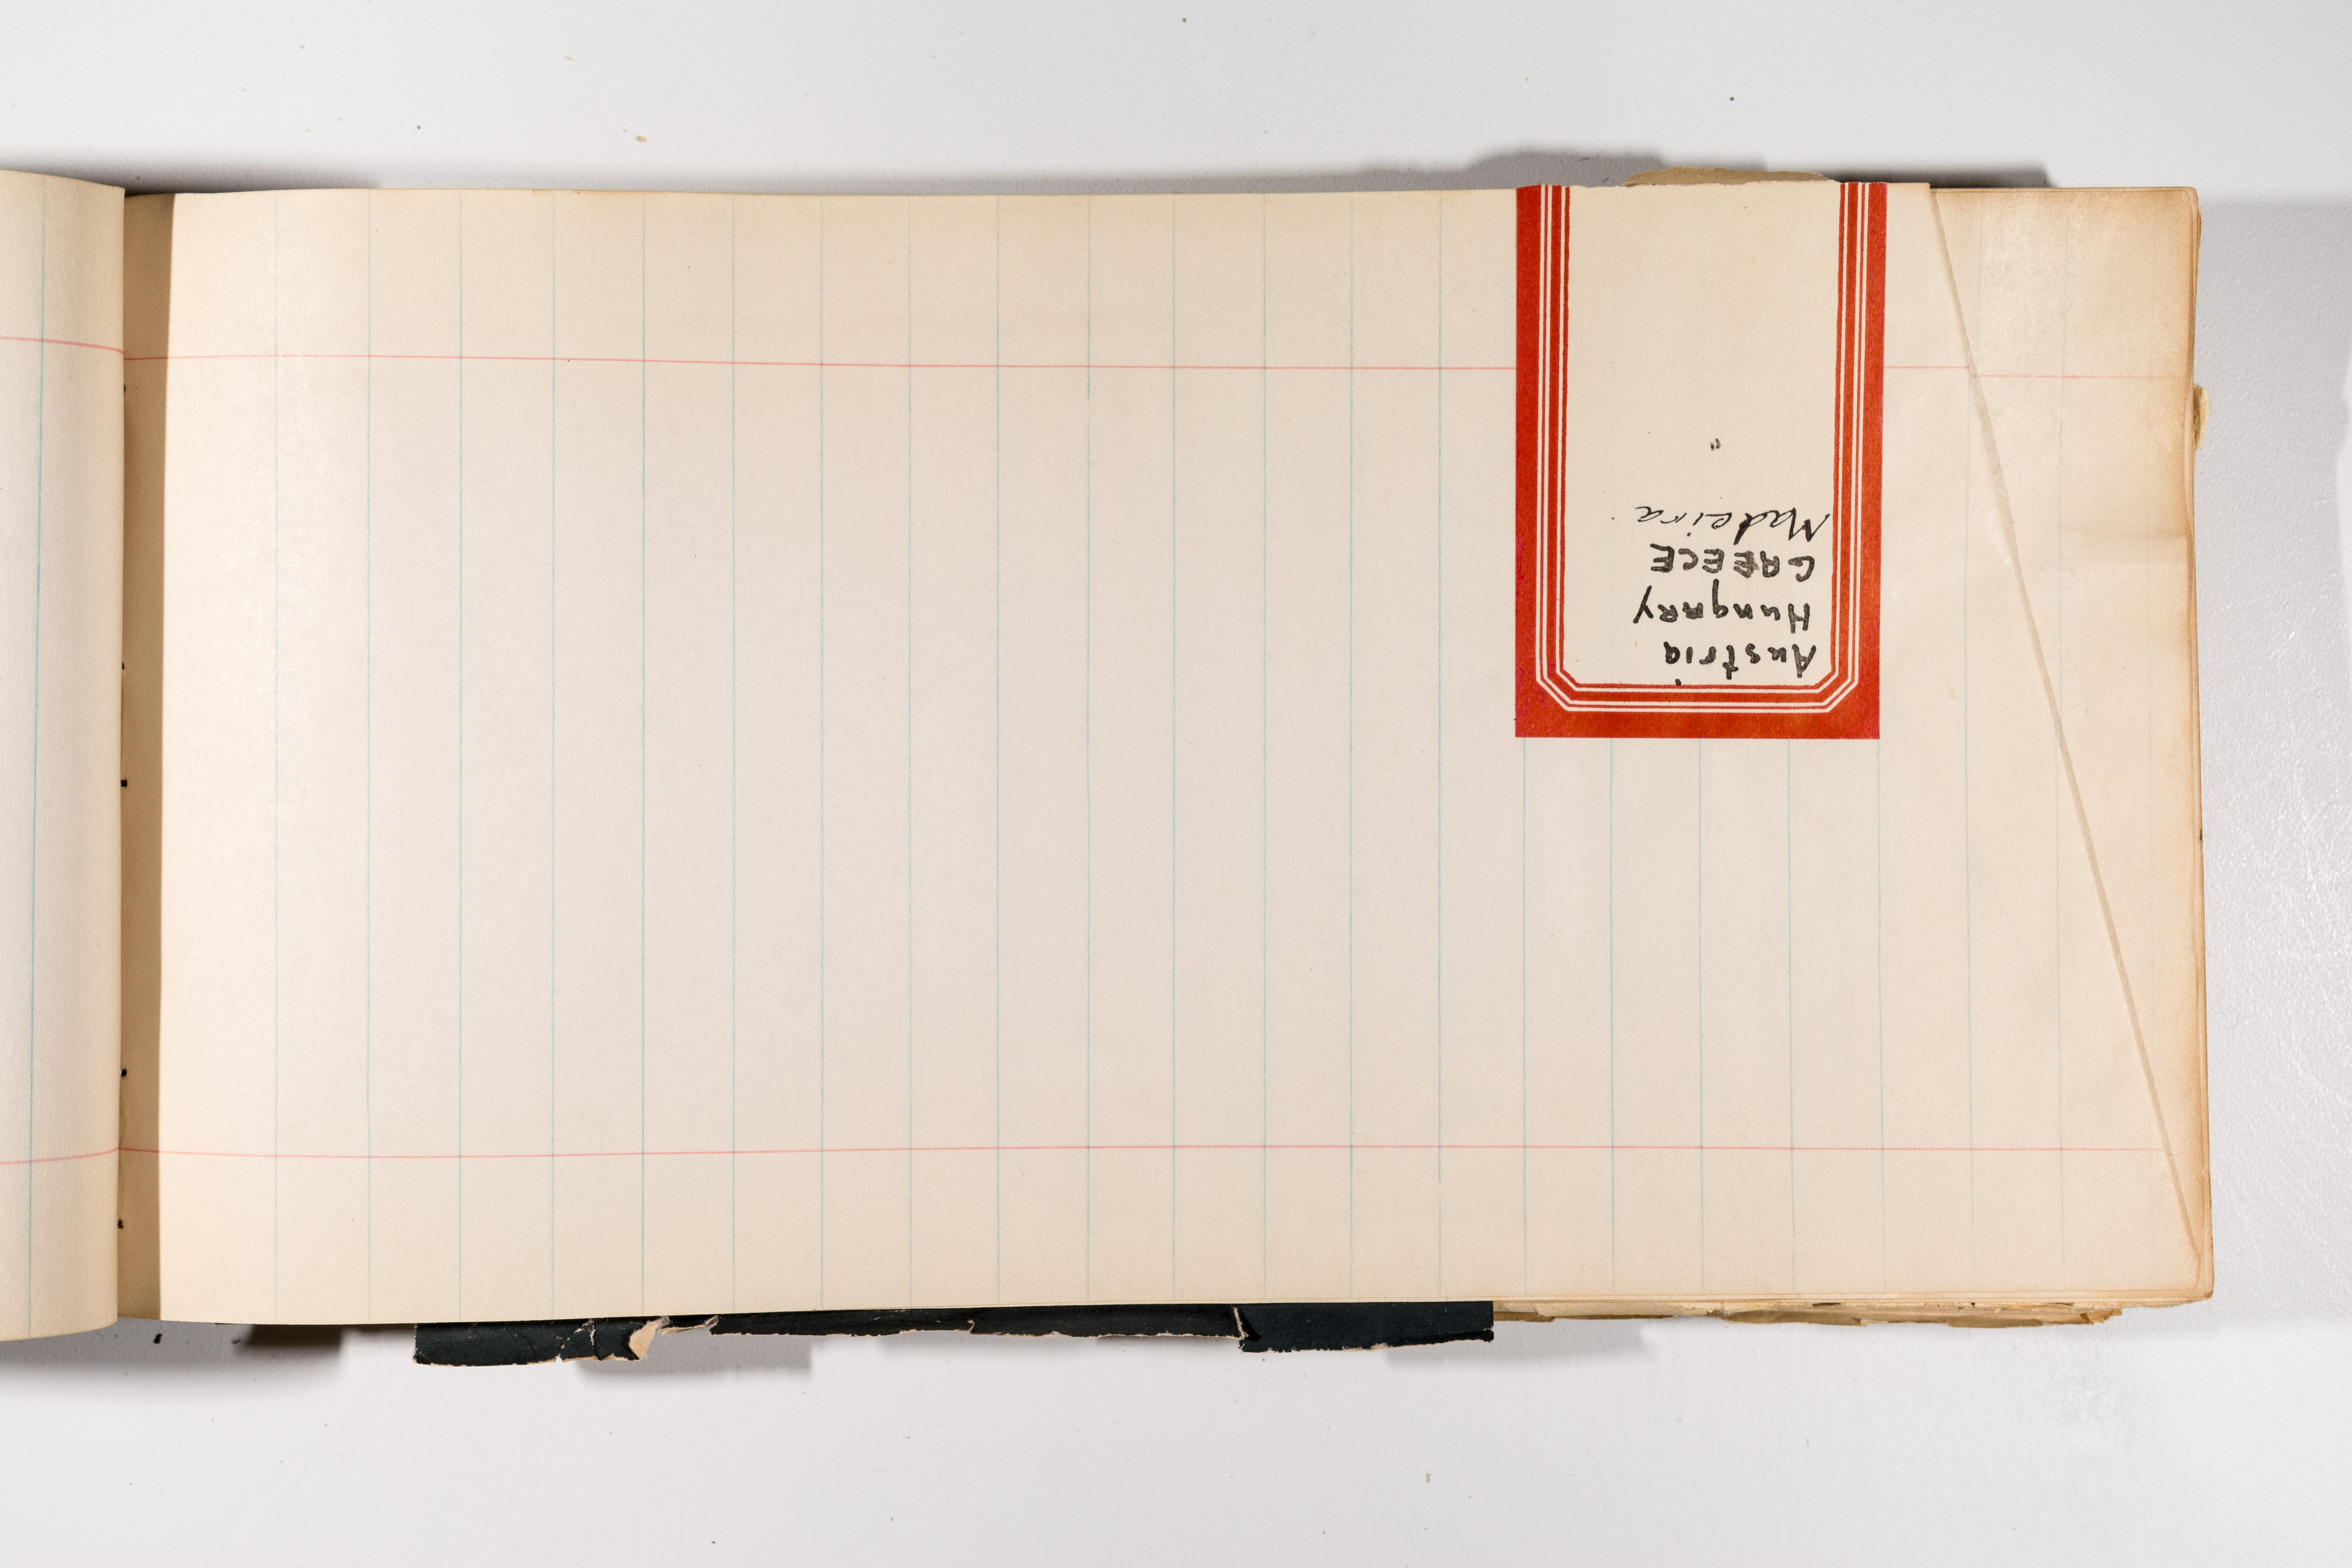 Austria
Hungary
GREECE
Madeira
"